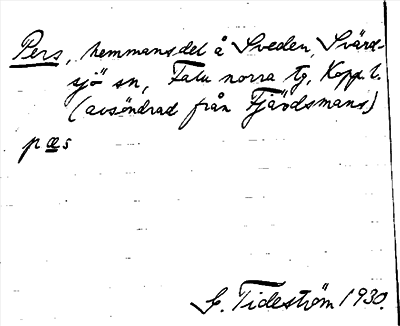 Pers, hemmansdel å Sveden, Svärd-
sjö sn, Falu norra tg, Kopp. l.
(avsöndrad från Fjärdsmans)
pæs
G. Tideström 1930.